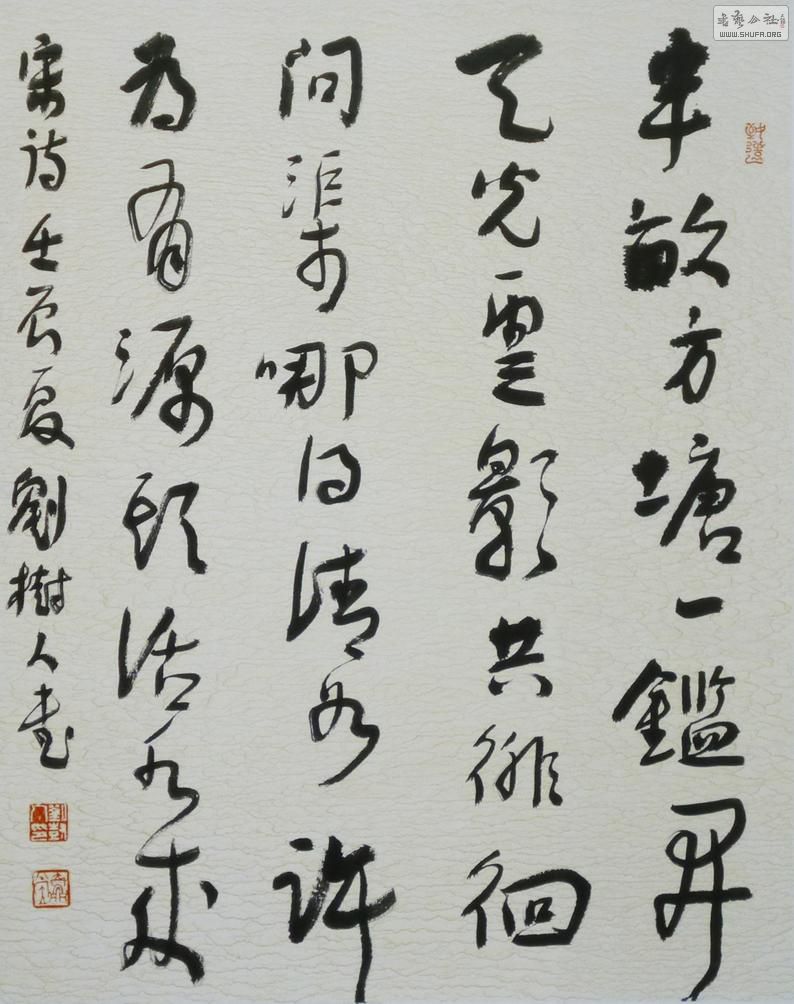 半畝方塘一鑑開
天光雲影共徘徊
問渠哪得清如許
為有源頭活水來
宋詩壬辰夏劉樹人書
書藝公社
WWW.SHUFA.ORG